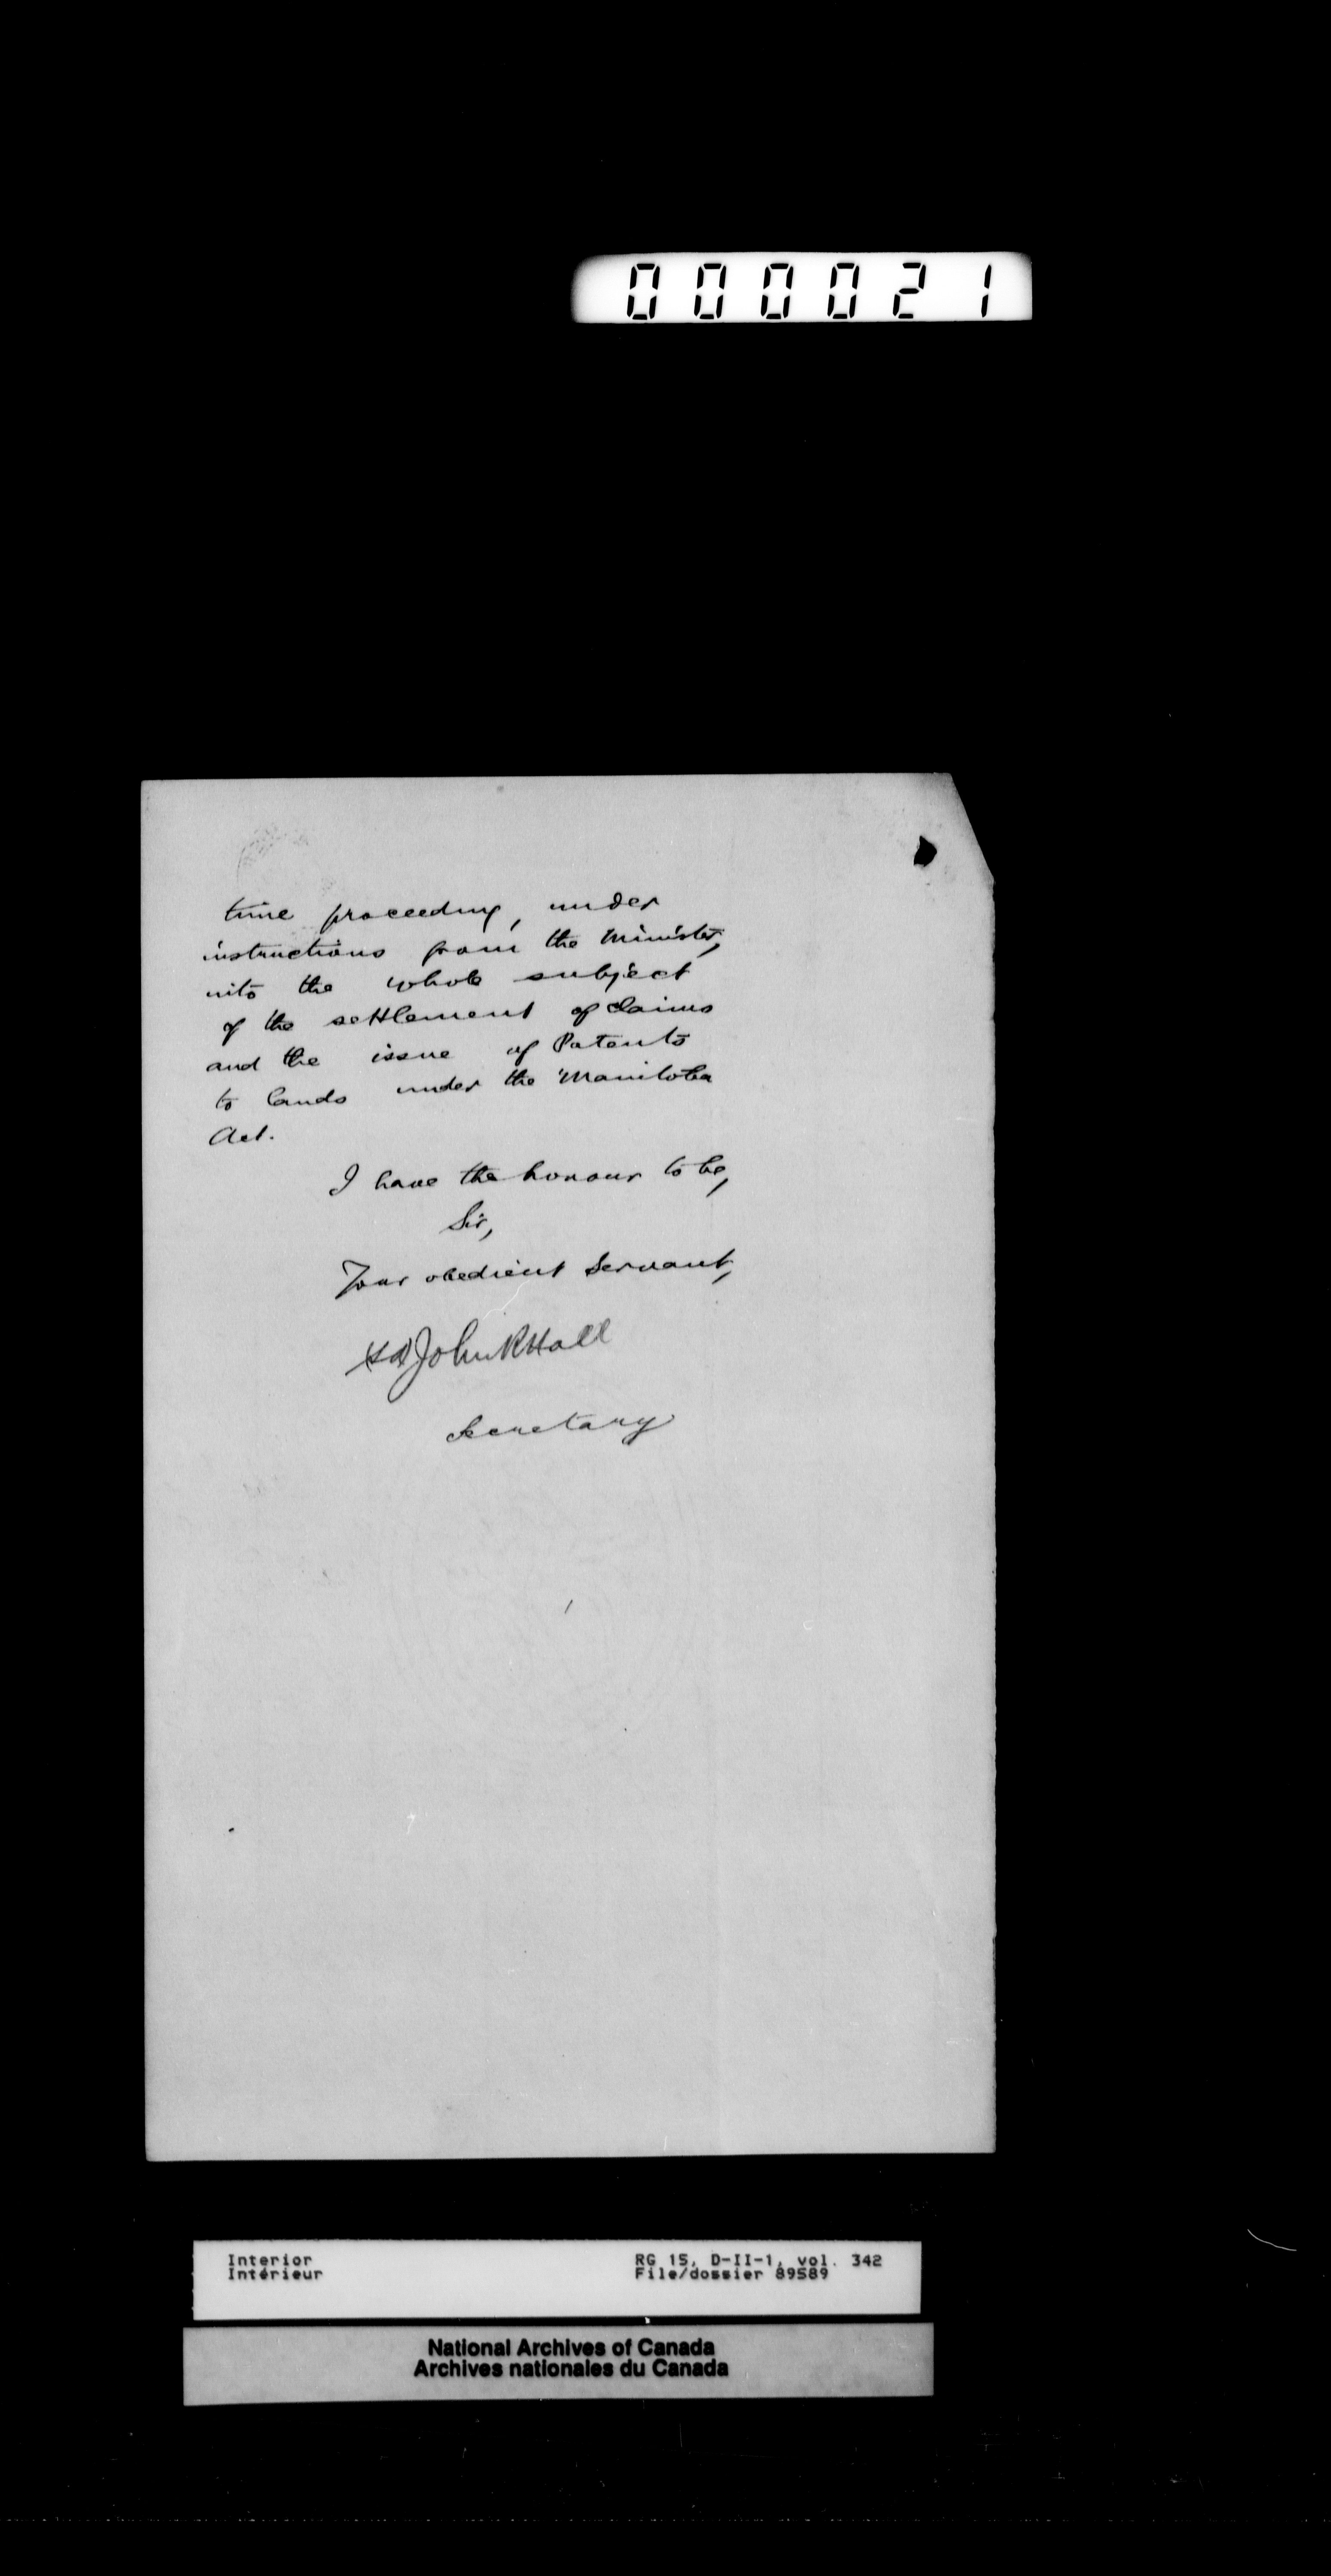 000021
time proceeding, under
instructions from the Minister,
into the whole subject
of the settlement of claims
and the issue of Patents
to lands under the Manitoba
Act.
I have the honour to be,
Sir,
Your obedient Servant,
Sd John R Hall
Secretary
Interior
Intérieur
RG 15, D-II-1, vol. 342
File/dossier 89589
National Archives of Canada
Archives nationales du Canada